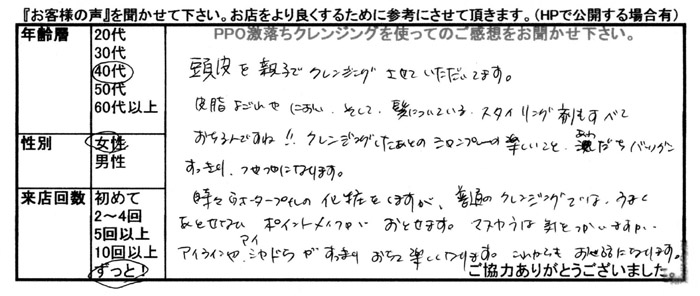 『お客様の声』を聞かせて下さい。お店をより良くするために参考にさせて頂きます。(HPで公開する場合有)
年齢層
20代
30代
40代
50代
60代以上
性別
女性
男性
来店回数
初めて
2～4回
5回以上
10回以上
ずっと！
PPO激落ちクレンジングを使ってのご感想をお聞かせ下さい。
頭皮を親子でクレンジングさせていただいてます。
皮脂よごれや におい、そして、髪についている、スタイリング剤もすべて
おちるんですね!! クレンジングしたあとのシャンプーの楽しいこと、泡だちバツグン
すっきり、つやつやになります。
時々 タープイルの化粧をしますが、普通のクレンジングでは、うまく
おとせない ポイントメイクが おとせます。マスカラは
アイラインや、アイシャドウ がすっきり おちて 楽しくなります。これからも お世話になります。
ご協力ありがとうございました。